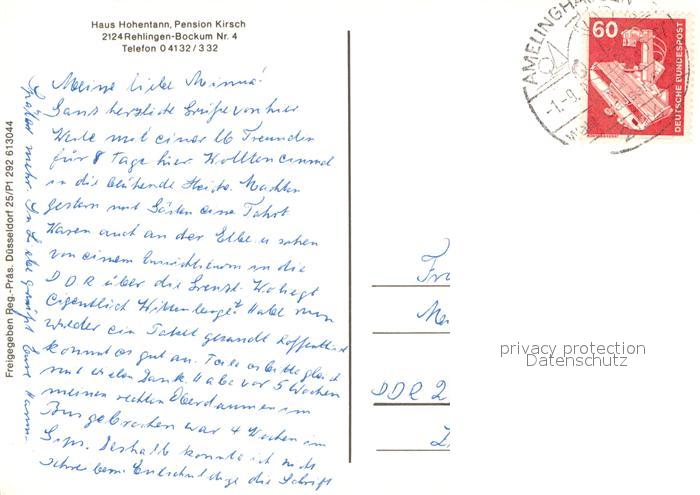 Haus Hohentann, Pension Kirsch
2124 Rehlingen-Bockum Nr. 4
Telefon 04132/332
Meine liebe Minna!
Ganz herzliche Grüße von hier
Weile mit einer lb Freundin
für 8 Tage hier Wollten einmal
in die blühende Heide. Machten
gestern mit Gästen eine Fahrt
Waren auch an der Elbe u sahen
von einem Aussichtsturm in die
DDR über die Grenze Wo liegt
eigentlich Wittenberge? Habe nun
wieder ein Paket gesandt hoffentlich
kommt es gut an. Teile es bitte gleich
mit vielen Dank. Habe vor 5 Wochen
meinen rechten Oberdaumen
gebrochen war 4 Wochen im
Gips. Deshalb konnte ich nicht
schreiben. Entschuldige die Schrift
Später mehr. In Liebe grüßt Eure
Freigegeben Reg.-Präs. Düsseldorf 25/P1 292 613044
AMELINGHAUSEN
60
DEUTSCHE BUNDESPOST
DDR 2
privacy protection
Datenschutz